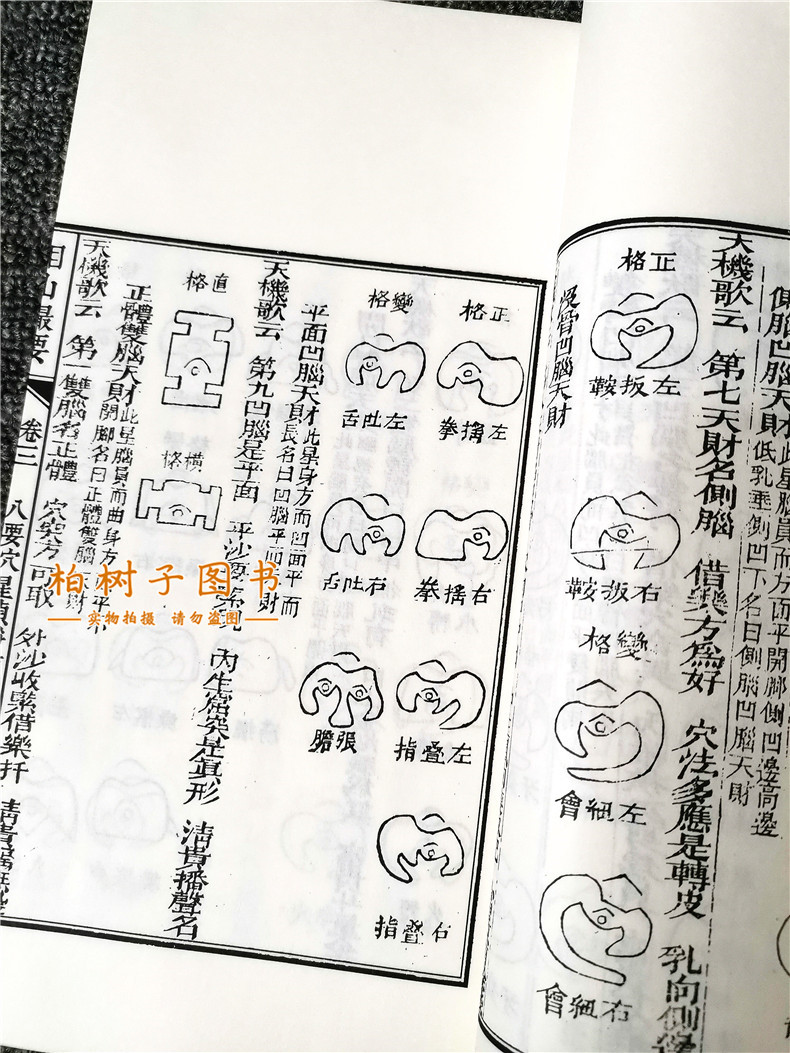 側腦凹腦天財此星腦員而方面平開腳側凹邊高邊
低乳垂側凹下名曰側腦凹腦天財
天機歌云 第七天財名側腦 借樂方為好 穴法多應是轉皮 乳向側邊
格正
鞍扳左
鞍扳右
格變
會紐左
會紐右
凹腦天財
格正
拳搊左
拳搊右
指疊左
指疊右
格變
舌吐左
舌吐右
膽張
平面凹腦天財此星身方而凹面平而
長名曰凹腦平面財
天機歌云 第九凹腦是平面 平沙 內生窩突是眞形 清貴播聲名
格直
格橫
正體雙腦天財此星腦員而曲身方
開腳名曰正體雙腦天財
天機歌云 第一雙腦名正體 穴突方可取 外沙收緊借樂扦 清貴
撮要
卷三
八要穴星
柏树子图书
实物拍摄 请勿盗图